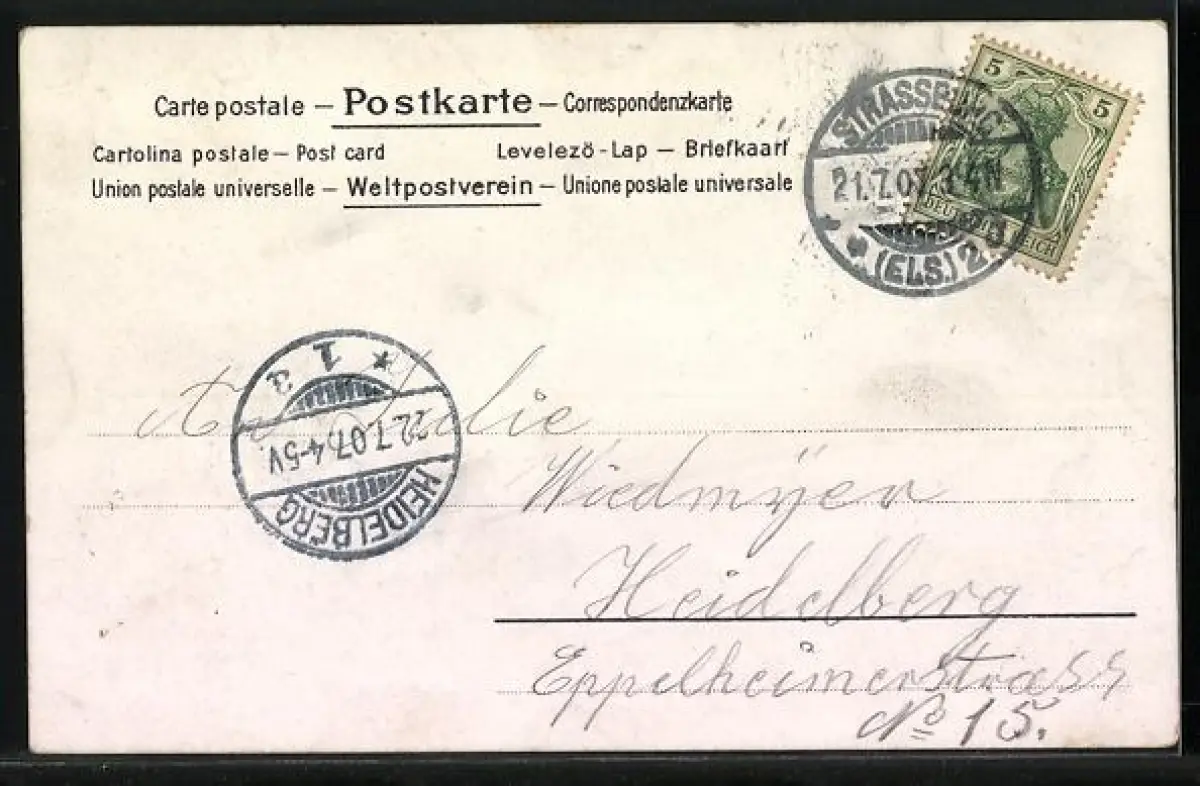 Carte postale – Postkarte – Correspondenzkarte
Cartolina postale – Post card Levelezö-Lap – Briefkaart
Union postale universelle – Weltpostverein – Unione postale universale
STRASSBURG
21.7.07. 3-4N
(ELS.) 2
5 5
DEUTSCHES REICH
* 1 a
22.7.07. 4-5V.
HEIDELBERG
Julie
Wiedmyer
Heidelberg
Eppelheimerstrass
No 15.